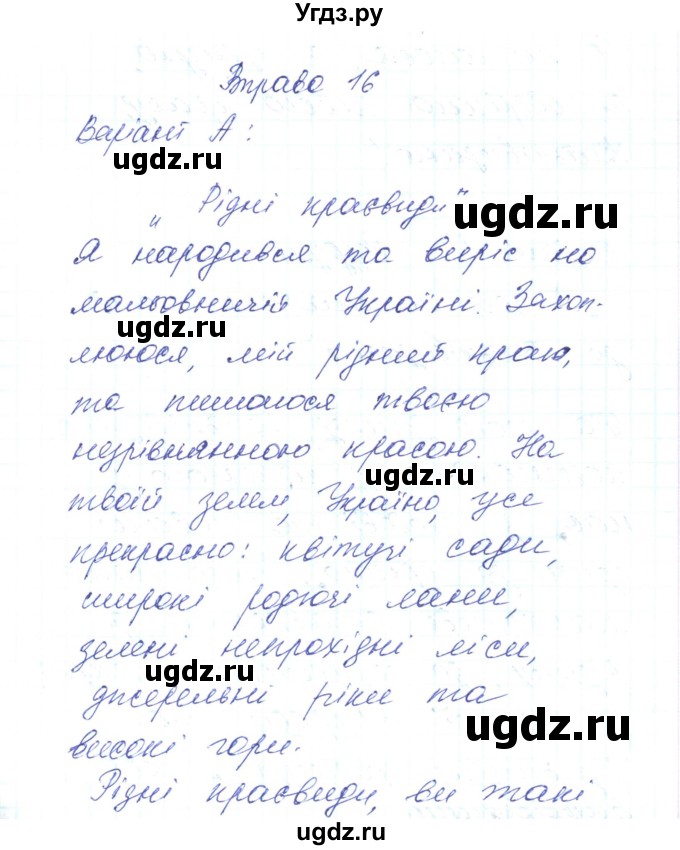 Угдз.ру
Вправа 16
Варіант А:
ugdz.ru
„Рідні краєвиди"
ugdz.ru
Я народився та виріс на
мальовничій Україні. Захоп-
ugdz.ru
люююся, мій рідний краю,
та пишаюся твоєю
незрівнянною красою. На
ugdz.ru
твоїй землі, Україно, усе
прекрасно: квітучі сади,
широкі родючі лани,
зелені непрохідні ліси,
ugdz.ru
джерельні ріки та
ugdz.ru
високі гори.
Рідні краєвиди, ви такі
ugdz.ru